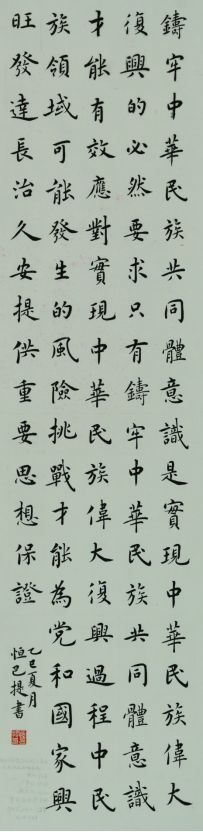 鑄牢中華民族共同體意識是實現中華民族偉大
復興的必然要求只有鑄牢中華民族共同體意識
才能有效應對實現中華民族偉大復興過程中民
族領域可能發生的風險挑戰才能為党和國家興
旺發達長治久安提供重要思想保證
乙巳夏月
恒已提書